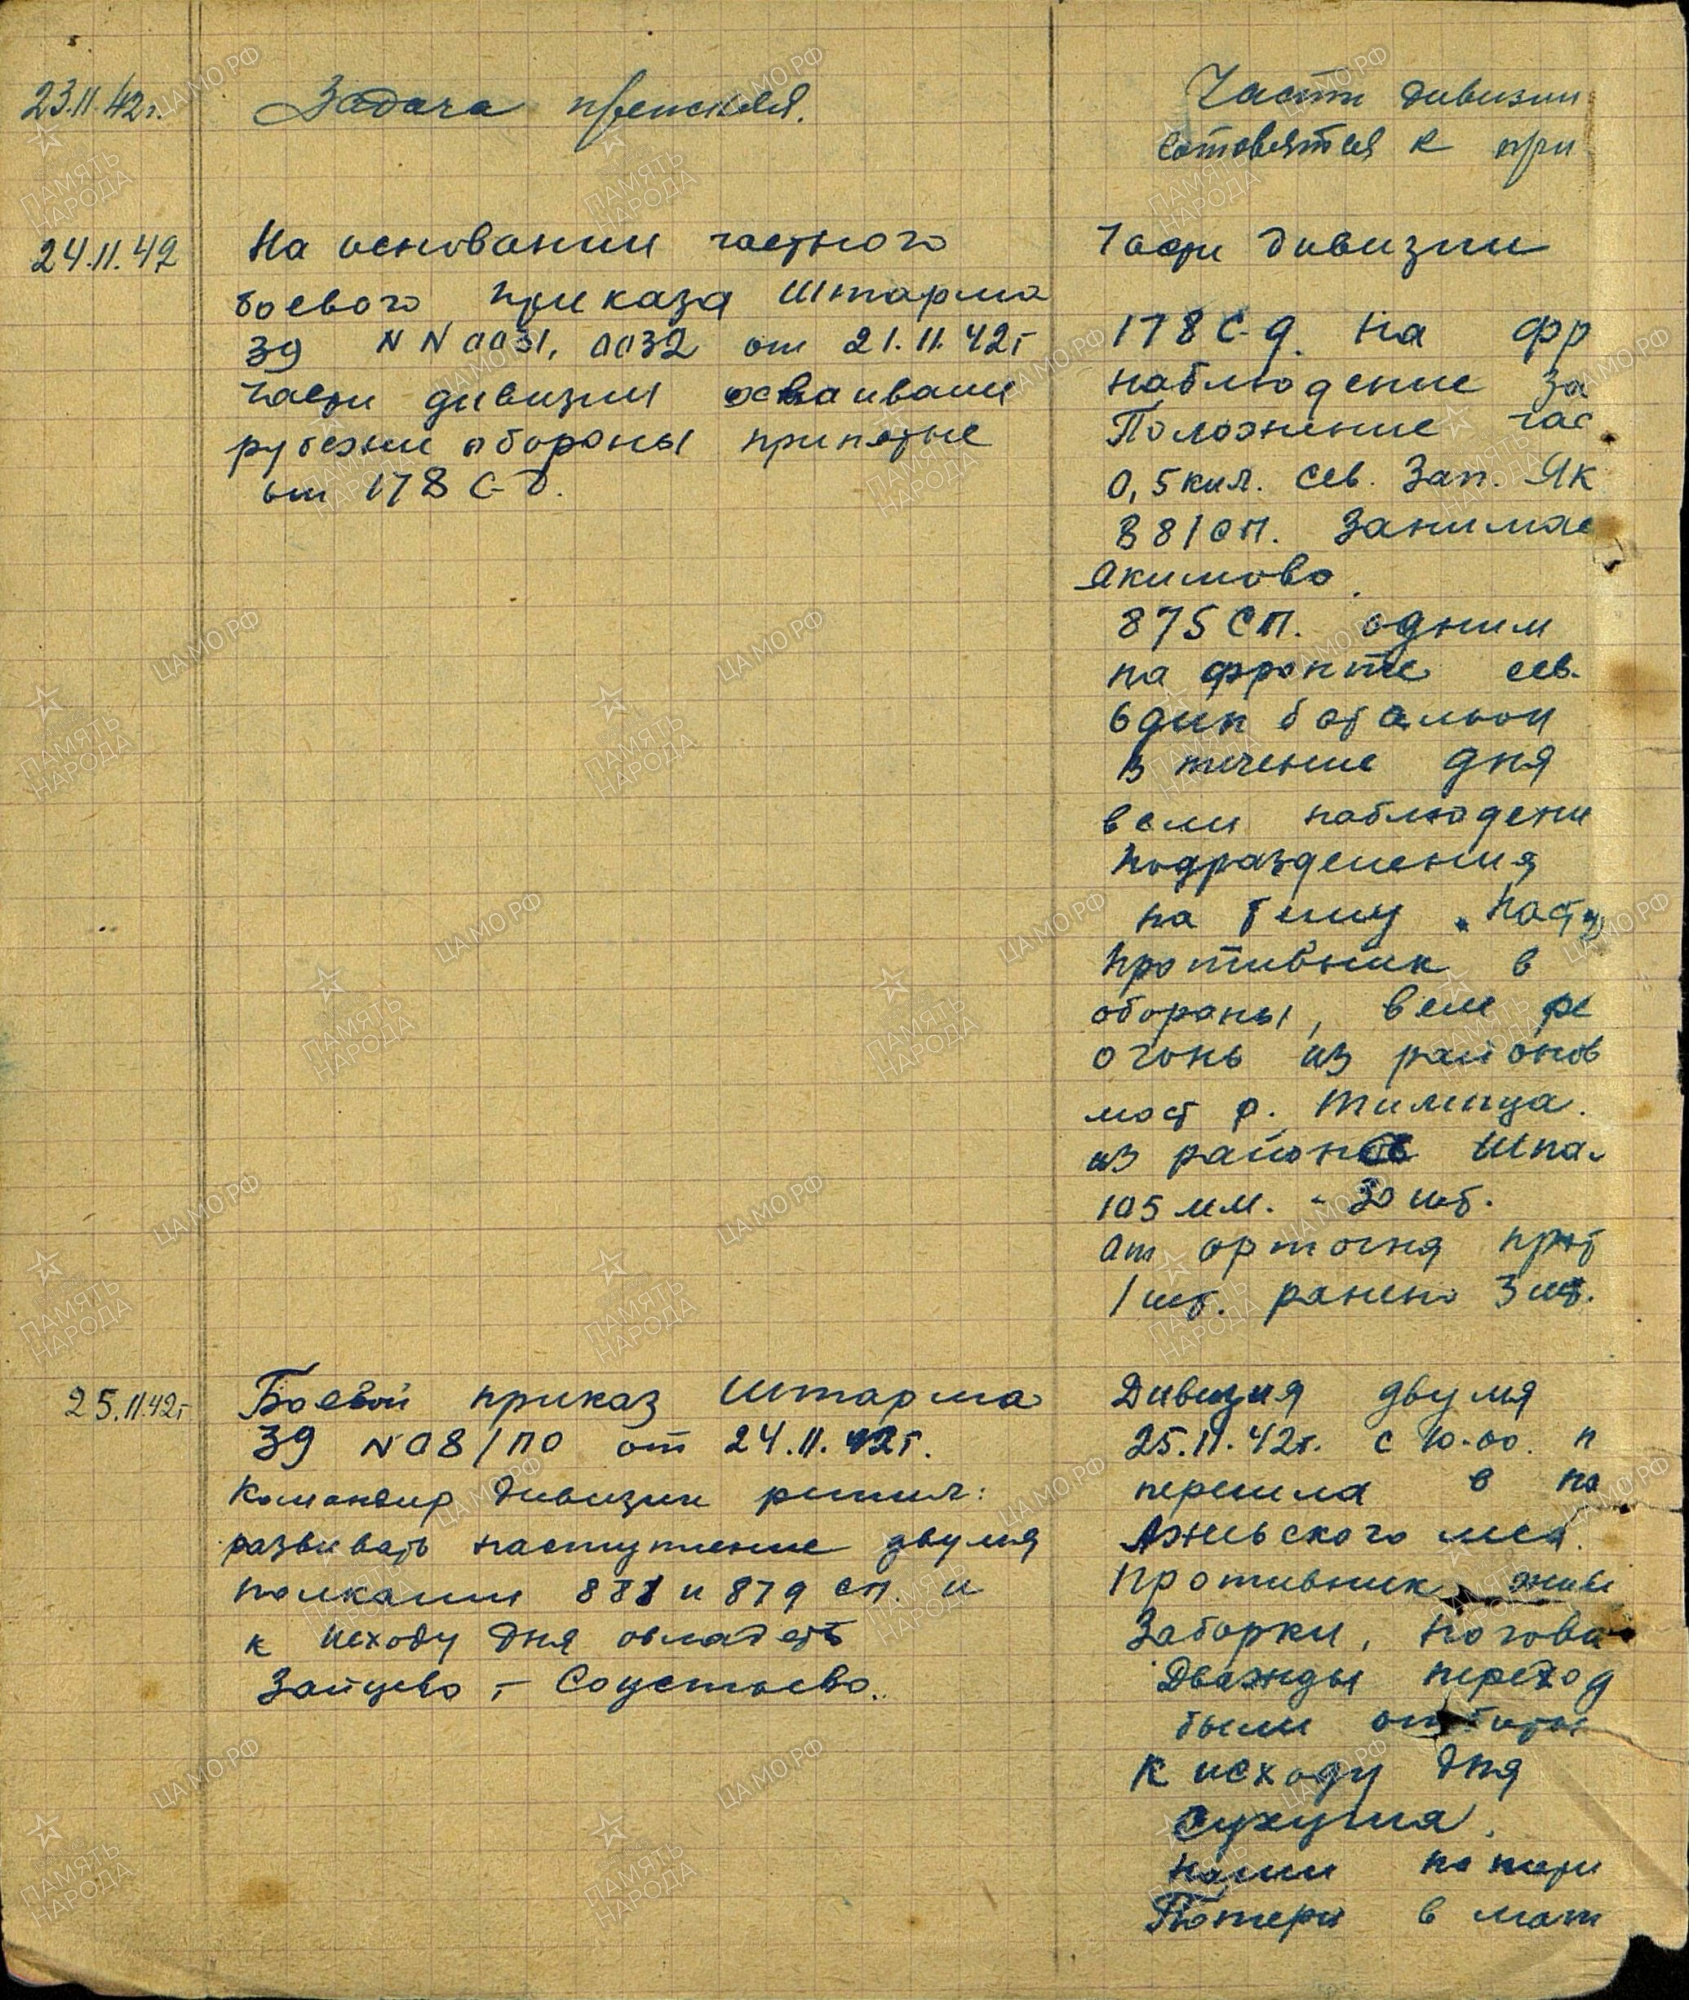 23.11.42г.
Задача прежняя.
Части дивизии
готовятся к при
24.11.42
На основании частного
боевого приказа Штарма
39 N N 0031, 0032 от 21.11.42г
части дивизии осваивали
рубежи обороны принятые
от 178 С-Д.
Части дивизии
178 С-Д. на фр
наблюдение за
Положение час
0,5 кил. Сев. Зап. Як
881 СП. Занимае
Якимово.
875 СП. одним
на фронте сев.
один батальон
В течение дня
вели наблюдени
подразделения
на тему „Насту
Противник в
обороны, вел
огонь из районов
мост р. Тилица.
из районов
105 мм. - 30 шт.
От артогня
1 шт. ранено 3 шт.
25.11.42г
Боевой приказ Штарма
39 N 08/ПО от 24.11.42г.
Командир дивизии решил:
развивать наступление двумя
полками 881 и 879 сп. и
к исходу дня овладеть
Зайцево, - Соустьево.
Дивизия двумя
25.11.42г. с 10-00. п
перешла в на
Противник
Заборки, Ногова
Дважды переход
были отбиты
К исходу дня
Сухуша.
Наши потери
Потери в мат